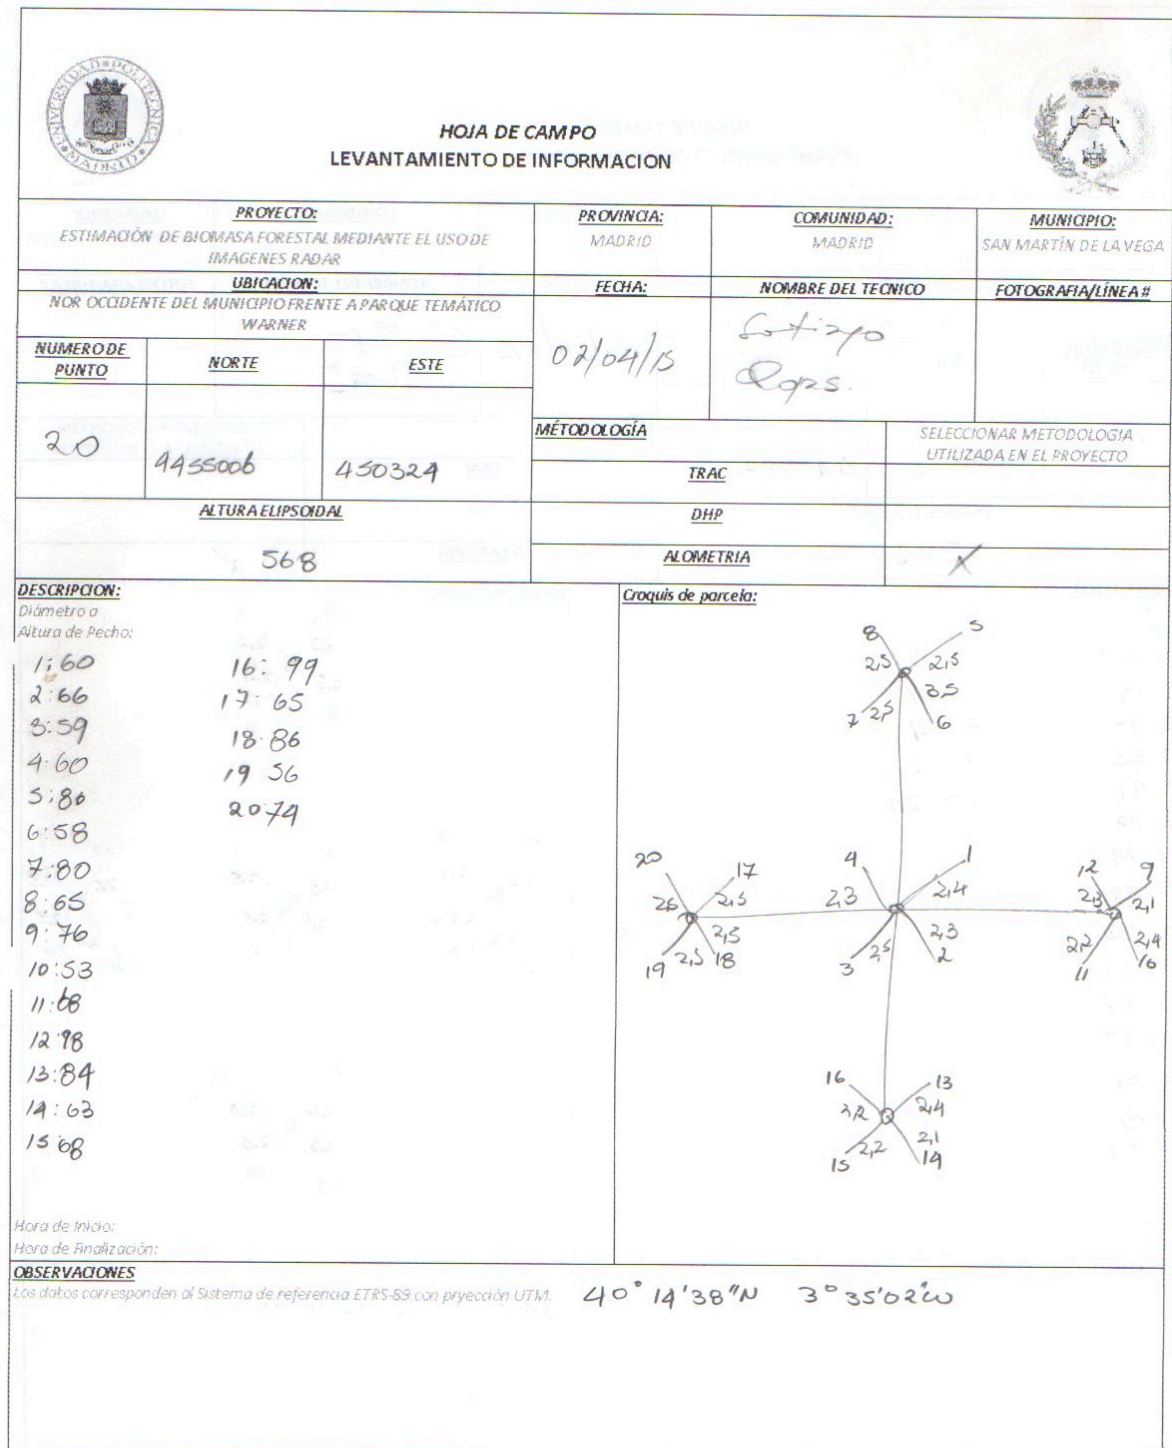 UNIVERSIDAD POLITECNICA MADRID
HOJA DE CAMPO
LEVANTAMIENTO DE INFORMACION
PROYECTO:
ESTIMACIÓN DE BIOMASA FORESTAL MEDIANTE EL USO DE
IMAGENES RADAR
PROVINCIA:
MADRID
COMUNIDAD:
MADRID
MUNICIPIO:
SAN MARTÍN DE LA VEGA
UBICACION:
NOR OCCIDENTE DEL MUNICIPIO FRENTE A PARQUE TEMÁTICO
WARNER
FECHA:
02/04/15
NOMBRE DEL TECNICO
FOTOGRAFIA/LÍNEA #
NUMERO DE
PUNTO
20
NORTE
4455006
ESTE
450324
MÉTODOLOGÍA
SELECCIONAR METODOLOGIA
UTILIZADA EN EL PROYECTO
TRAC
DHP
ALOMETRIA
X
ALTURA ELIPSOIDAL
568
DESCRIPCION:
Diámetro a
Altura de Pecho:
1:60
2:66
3:59
4:60
5:80
6:58
7:80
8:65
9:76
10:53
11:68
12:98
13:84
14:63
15 68
16: 99
17 65
18 86
19 56
20 74
Croquis de parcela:
8 5
2,5 2,5
7 2,5 3,5 6
20 17
26 2,5
19 2,5 2,5 18
4 1
2,3 2,4
3 2,5 2,3 2
12 9
2,3 2,1
11 2,2 2,4 10
16 13
2,2 2,4
15 2,2 2,1 14
Hora de Inicio:
Hora de Finalización:
OBSERVACIONES
Los datos corresponden al Sistema de referencia ETRS-89 con pryección UTM. 40° 14'38"N 3° 35'02"W